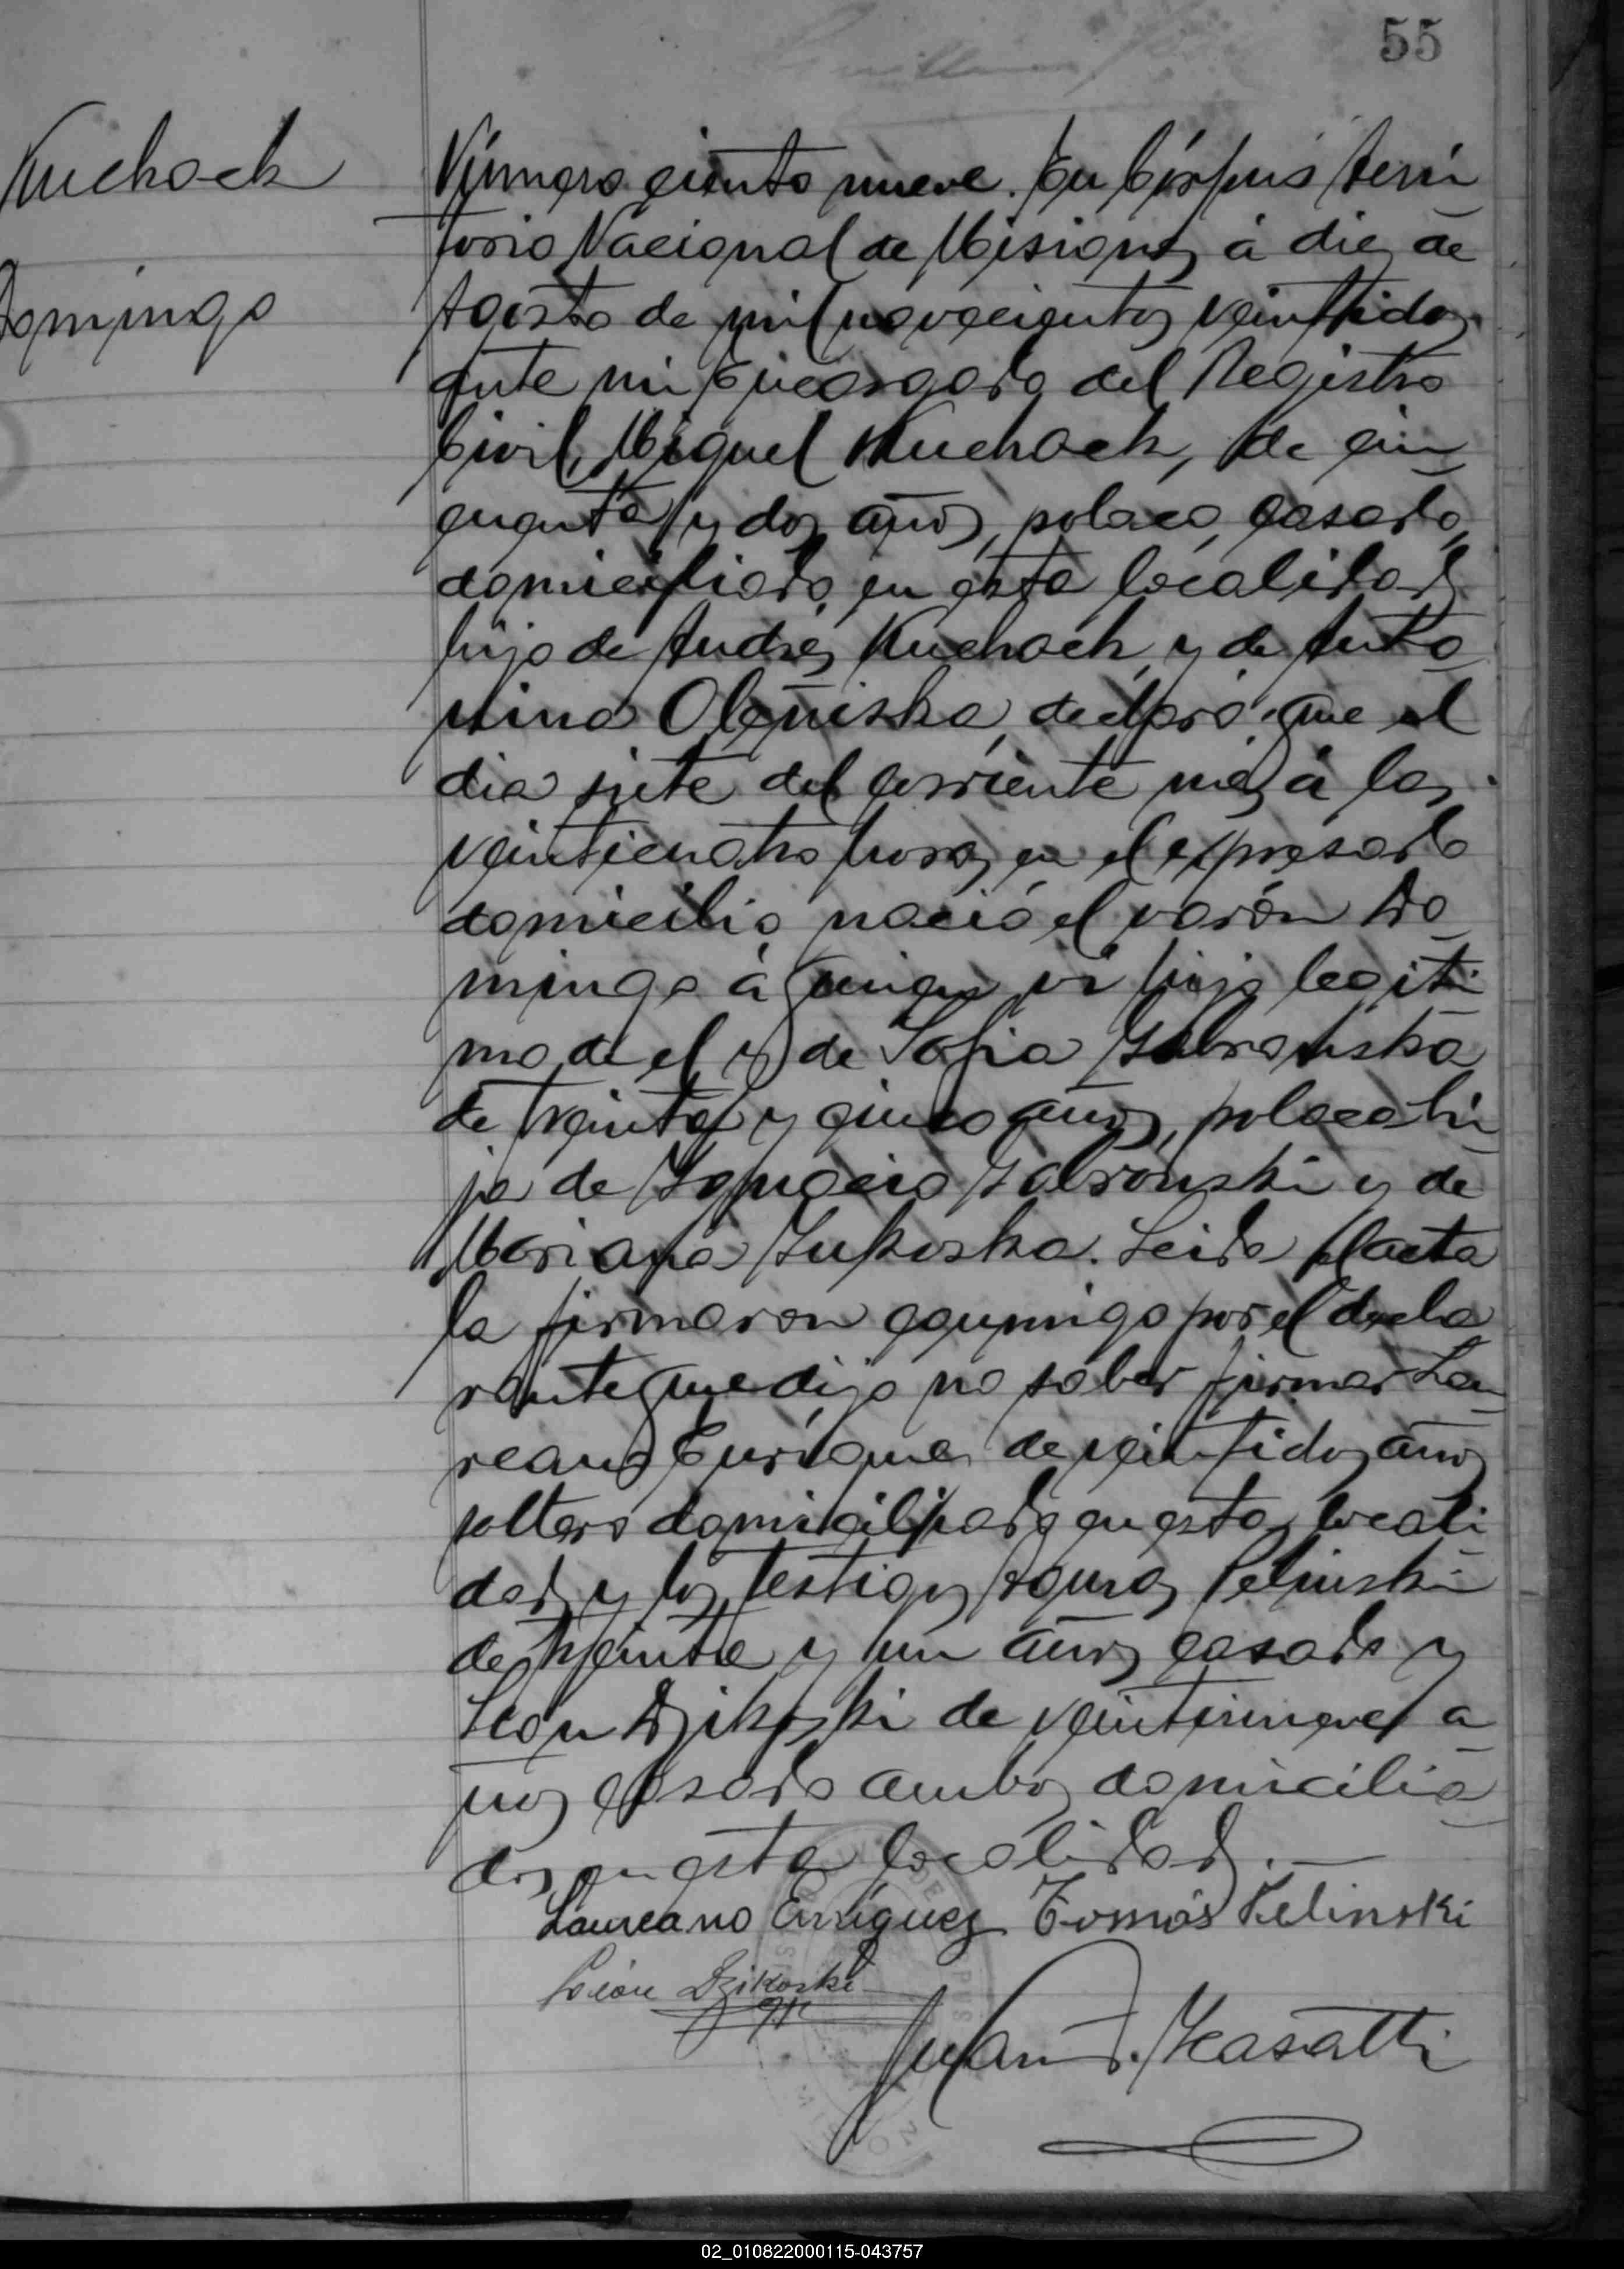 55
Kuchack
Domingo
Número ciento nueve. En Córpus Terri
torio Nacional de Misiones á diez de
Agosto de mil novecientos veintidos,
ante mi Encargado del Registro
Civil, Miguel Kuchack, de cin
cuenta y dos años, polaco, casado,
domiciliado en esta localidad
hijo de Andrés Kuchack y de Anto
nina Oleniska, declaró: que el
dia siete del corriente mes á las
veinticuatro horas en el expresado
domicilio nació el varón Do
mingo á quien vi hijo legiti
mo de el y de Sofia
de treinta y cinco años, polaca hi
ja de Ignacio y de
Mariana Leida el acta
la firmaron conmigo por el decla
rante que dijo no saber firmar Lau
reano Enriquez de veintidos años
soltero domiciliado en esta locali
dad y los testigos Tomas Pelinski
de treinta y un años casado y
León Dzikoski de veintinueve a
ños casado ambos domicilia
dos en esta localidad.
Laureano Enríquez Tomás Pelinski
León Dzikoski
Juan
02_010822000115-043757